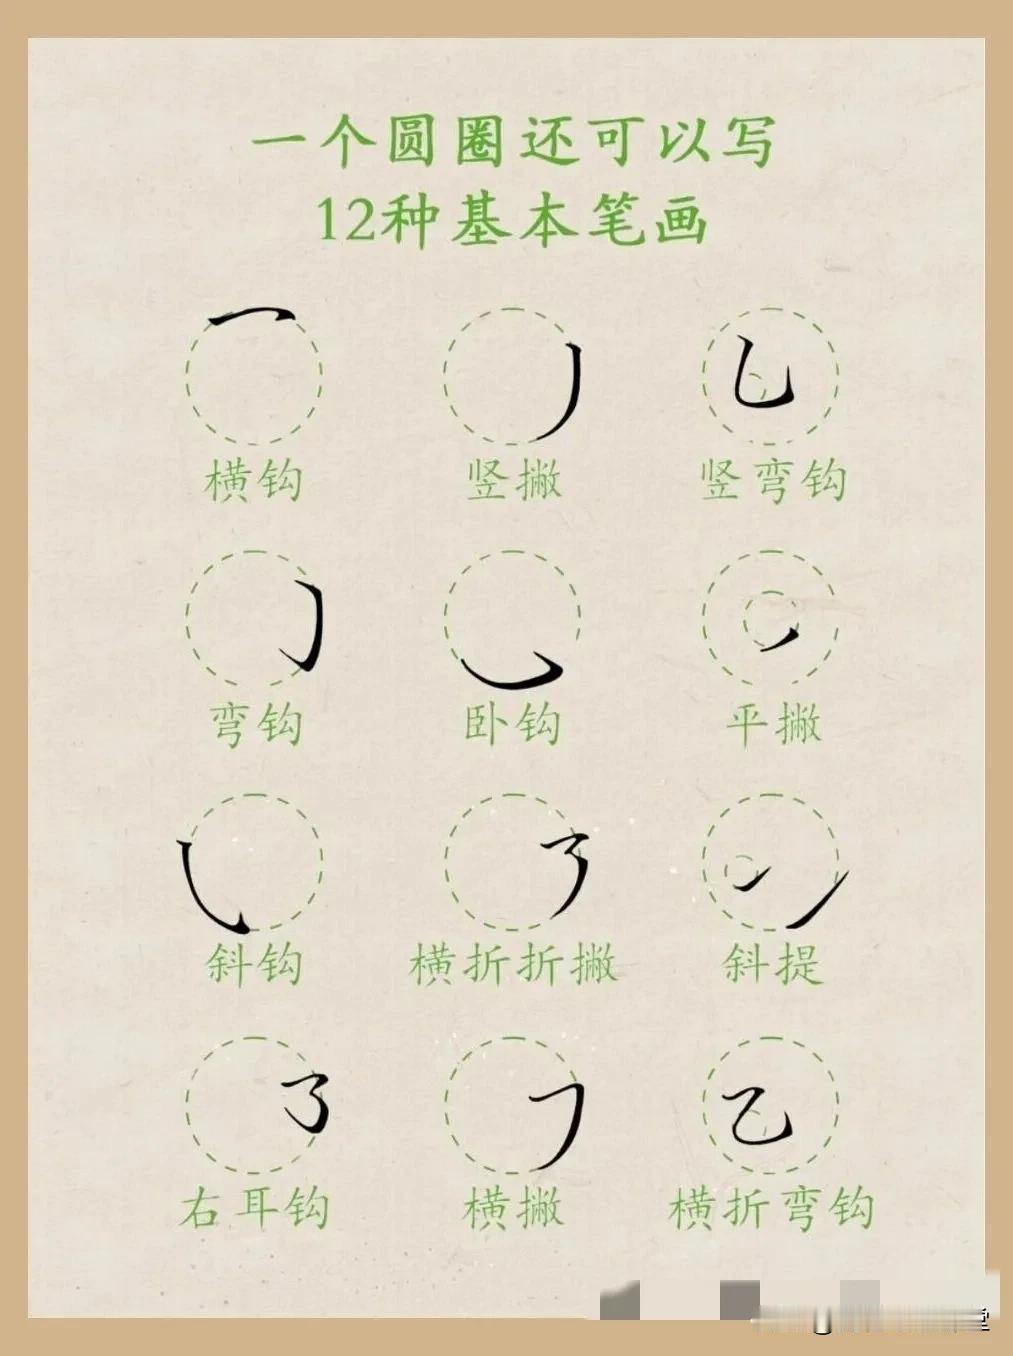 一个圆圈还可以写
12种基本笔画
横钩 竖撇 竖弯钩
弯钩 卧钩 平撇
斜钩 横折折撇 斜提
右耳钩 横撇 横折弯钩